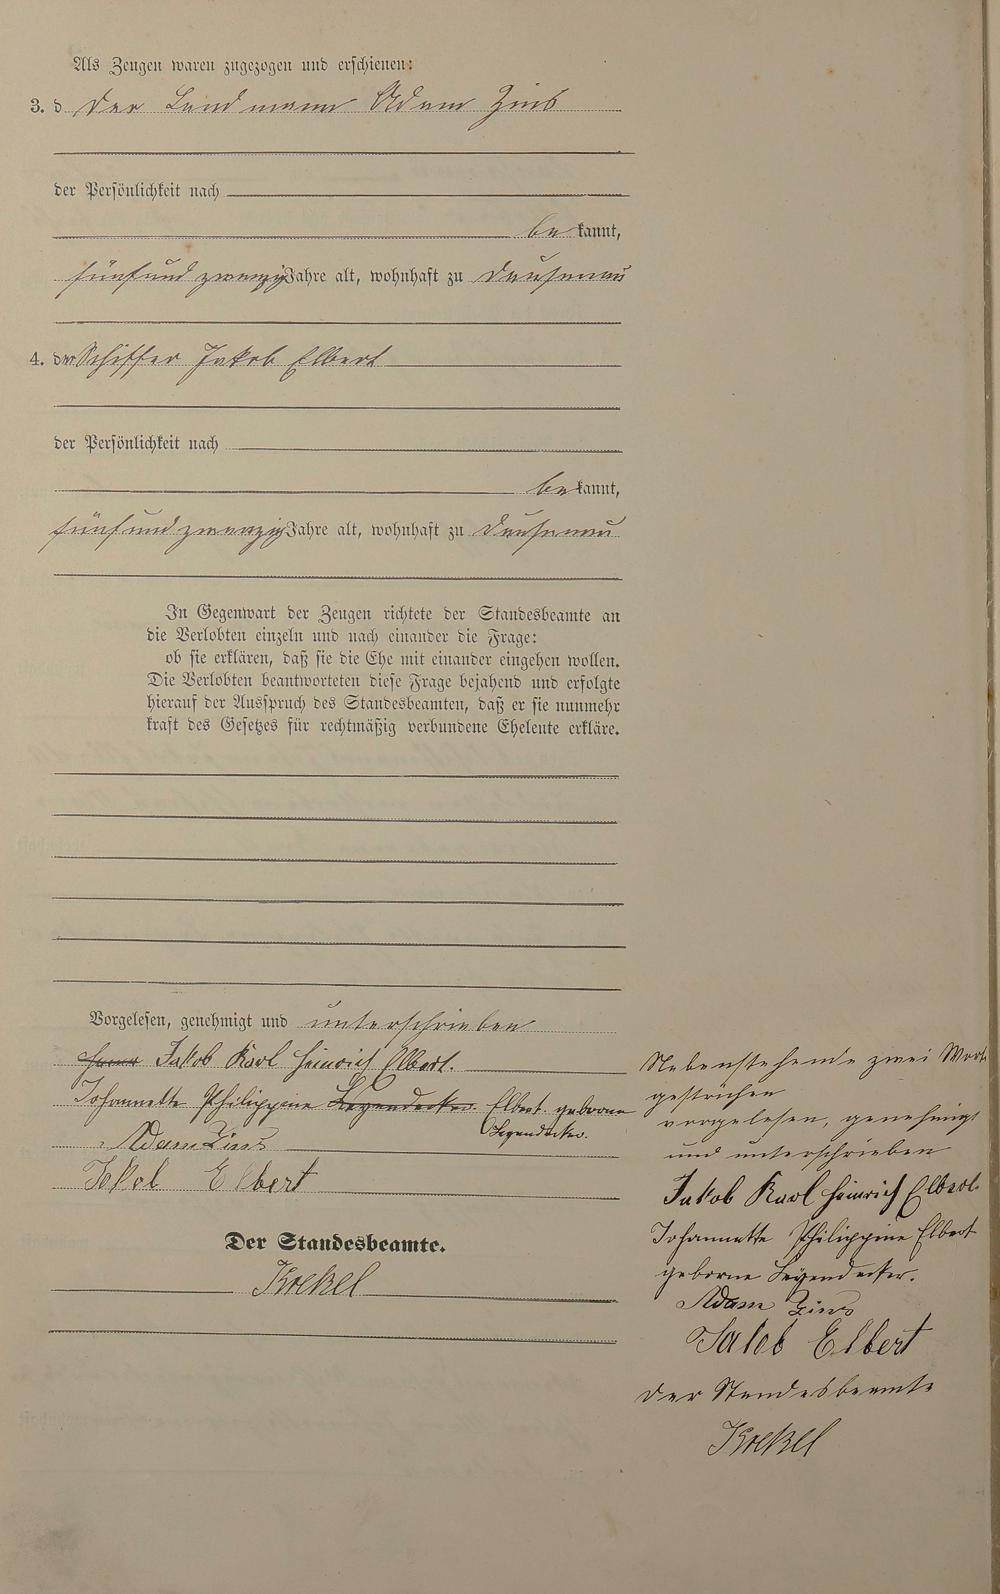 Als Zeugen waren zugezogen und erschienen:
3. d Der Landmann Adam Zins
der Persönlichkeit nach
bekannt,
fünfundzwanzig Jahre alt, wohnhaft zu Dausenau
4. der Schiffer Jakob Elbert
der Persönlichkeit nach
bekannt,
fünfundzwanzig Jahre alt, wohnhaft zu Dausenau
In Gegenwart der Zeugen richtete der Standesbeamte an
die Verlobten einzeln und nach einander die Frage:
ob sie erklären, daß sie die Ehe mit einander eingehen wollen.
Die Verlobten beantworteten diese Frage bejahend und erfolgte
hierauf der Ausspruch des Standesbeamten, daß er sie nunmehr
kraft des Gesetzes für rechtmäßig verbundene Eheleute erkläre.
Vorgelesen, genehmigt und unterschrieben
Jakob Karl Heinrich Elbert.
Johannette Philippine Leyendecker Elbert geborne
Leyendecker.
Adam Zins
Jakob Elbert
Der Standesbeamte.
Krekel
Nebenstehende zwei Worte
gestrichen
vorgelesen, genehmigt
und unterschrieben
Jakob Karl Heinrich Elbert.
Johannette Philippine Elbert
geborne Leyendecker.
Adam Zins
Jakob Elbert
Der Standesbeamte
Krekel